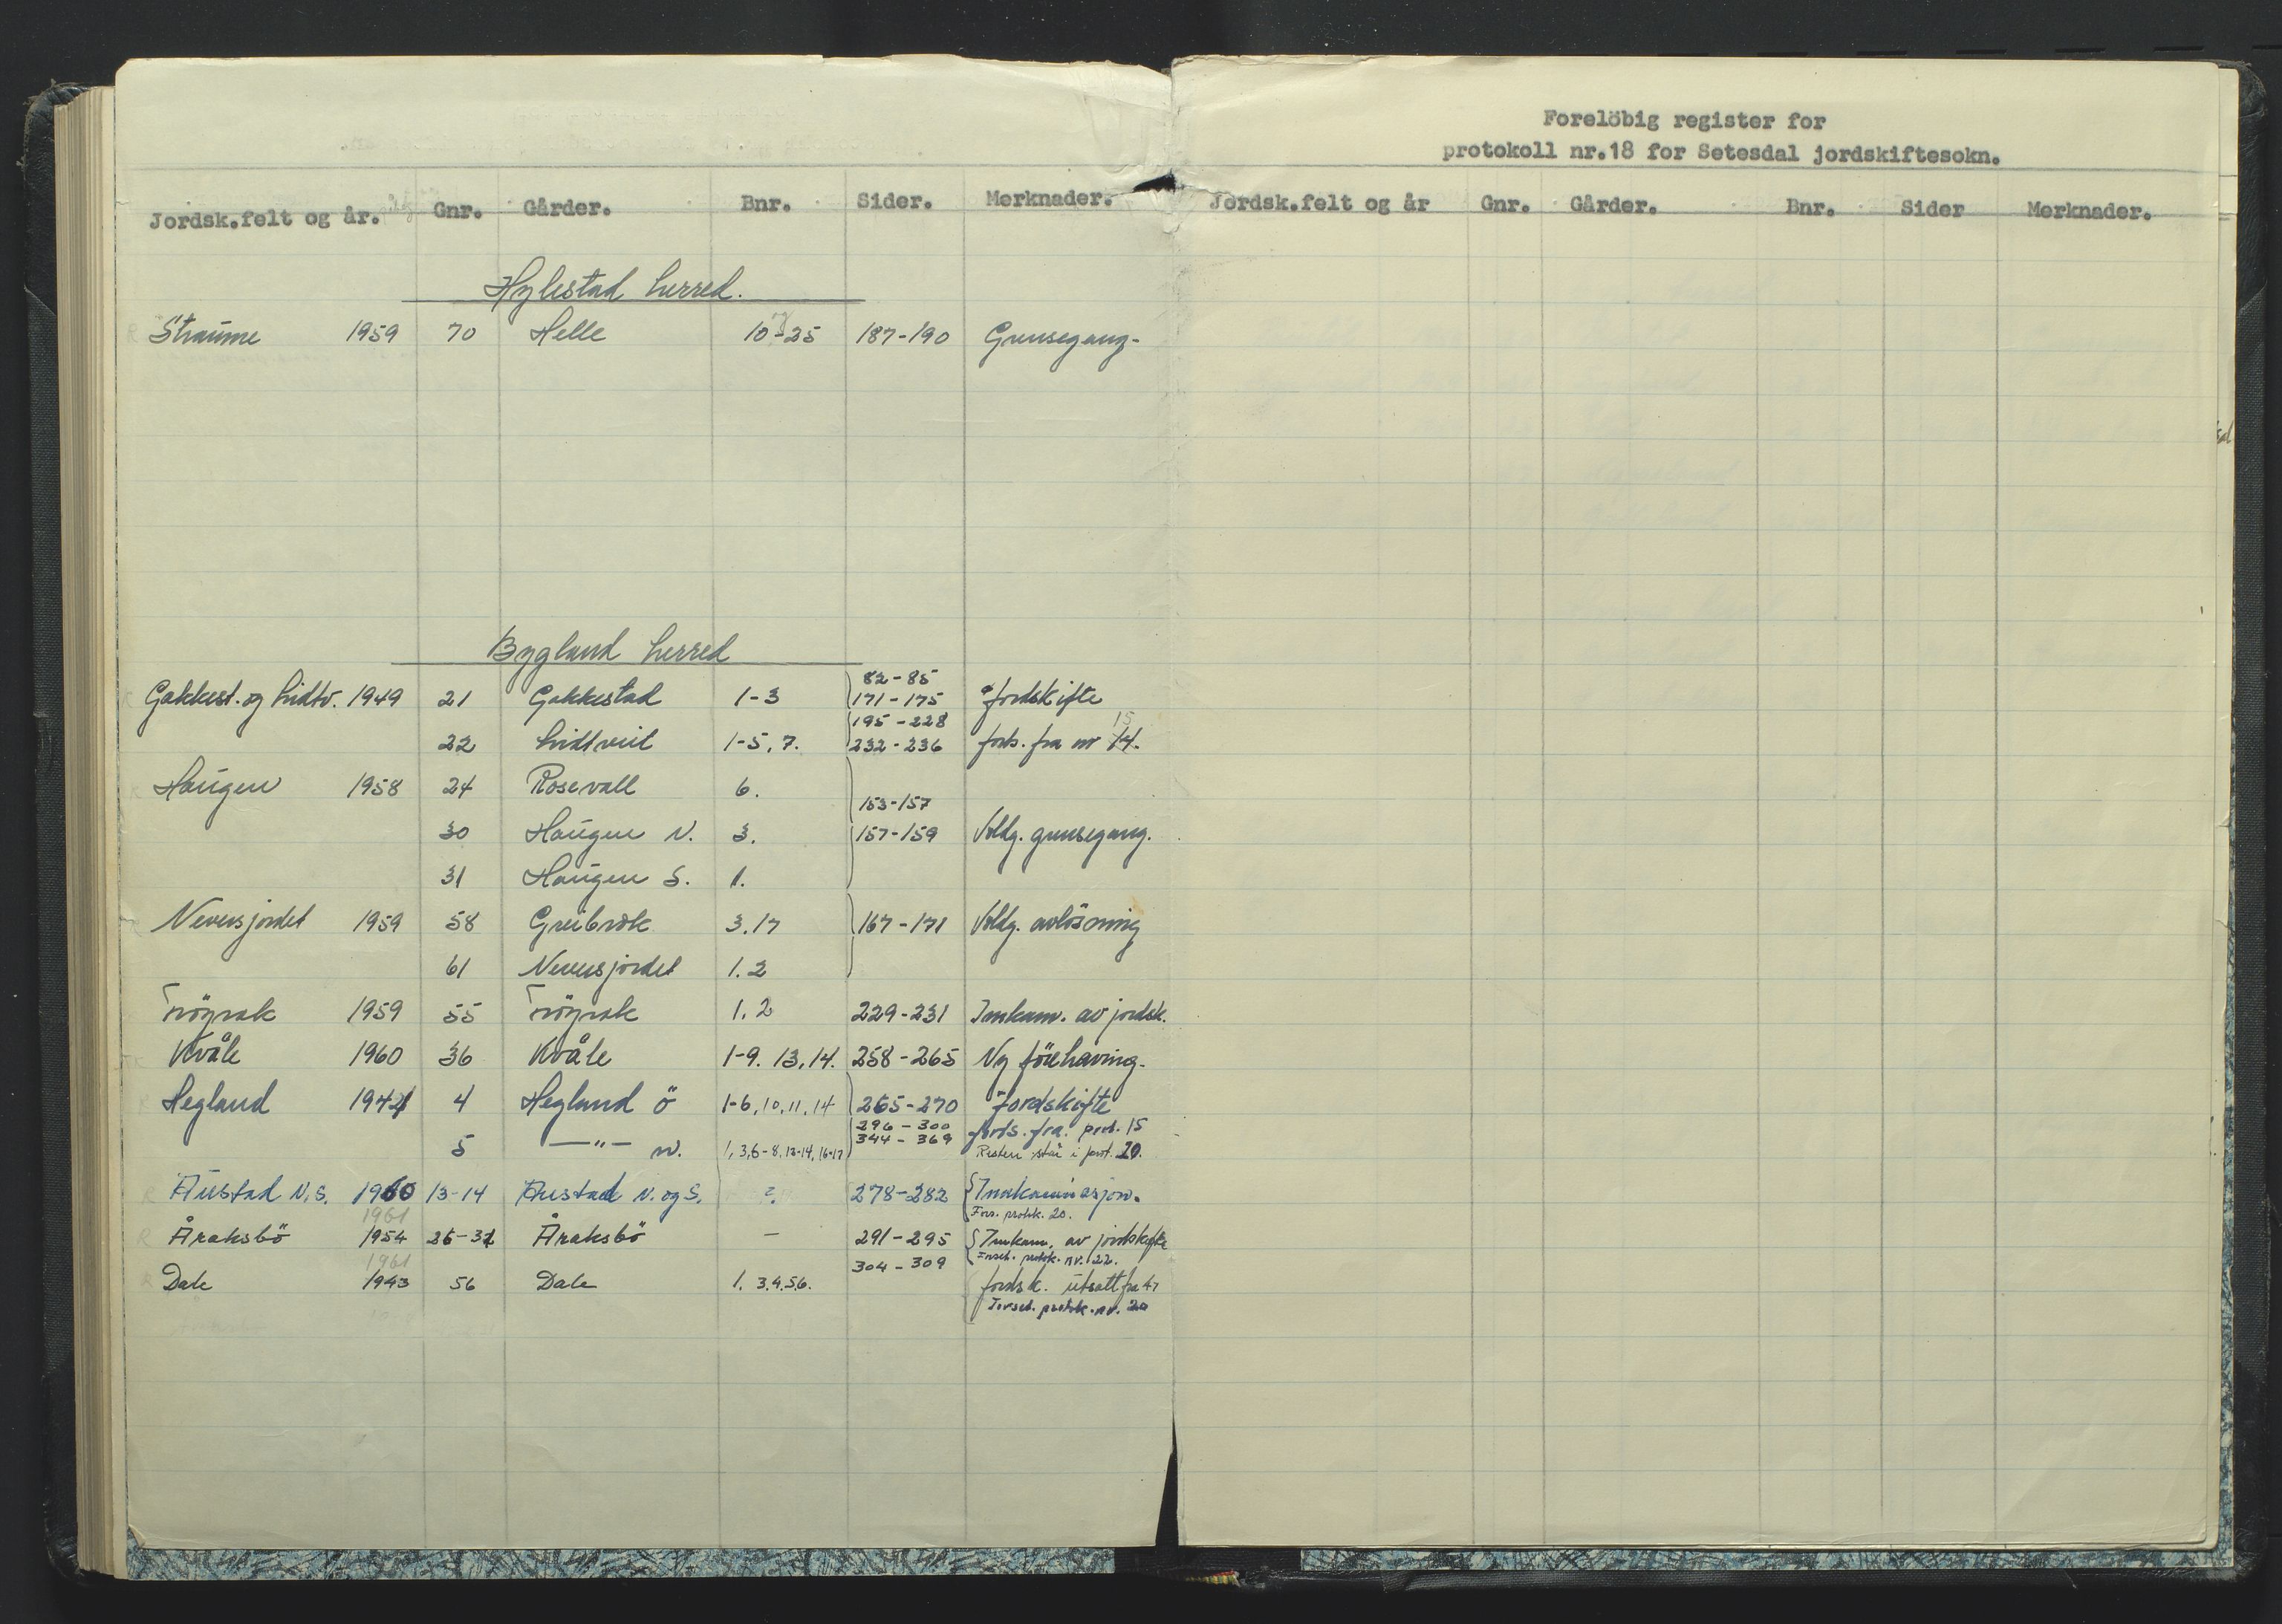 Jordsk.felt og år. Gnr. Gårder. Bnr. Sider. Merknader.
Hylestad herred.
Straume 1959 70 Helle 10-25 187-190 Grensegang-
Bygland herred
82-85
Gakkest. og Lidtv. 1949 21 Gakkestad 1-3 171-175 Jordskifte
195-228 15
22 Lidtveit 1-5, 7. 232-236 forts. fra nr 14.
Haugen 1958 24 Rosevall 6.
153-157
30 Haugen N. 3. 157-159 Voldg. grensegang.
31 Haugen S. 1.
Neversjordet 1959 58 Greibrok 3.17 167-171 Voldg. avlösning
61 Neversjordet 1.2
Fröyrak 1959 55 Fröyrak 1.2 229-231 Innkam. av jordsk.
Kvåle 1960 36 Kvåle 1-9. 13, 14. 258-265 Ny förehaving.
Hegland 1941 4 Hegland ö 1-6, 10, 11, 14 265-270 Jordskifte
296-300 forts. fra. prot. 15
5 -"- n. 1, 3, 6-8, 13-14, 16-17 344-369 Resten står i prot. 20.
Austad N.S. 1960 13-14 Austad N. og S. ?. 278-282 Innkaminasjon.
1961 Fors. protok. 20.
Åraksbö 1954 26-31 Åraksbö - 291-295 Innkam. av jordskifte
1961 304-309 Forset. protok. nr. 22.
Dale 1943 56 Dale 1. 3.4.5.6. Jordsk. utsatt fra 47
Forset. protok. nr. 20
Forelöbig register for
protokoll nr.18 for Setesdal jordskiftesokn.
Jordsk.felt og år Gnr. Gårder. Bnr. Sider Merknader.